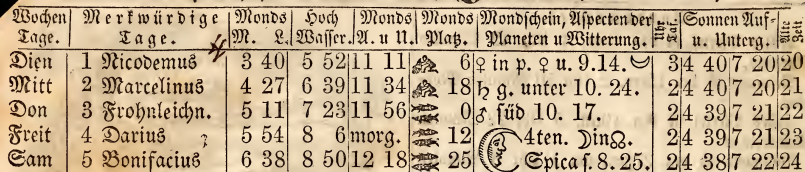 Wochen Tage. | Merkwürdige Tage. | Monds M. L. | Hoch Wasser. | Monds A. u U. | Monds Platz. | Mondschein, Aspecten der Planeten u Witterung. | Uhr | Sonnen Auf- u. Unterg. | Alte Zeit
Dien 1 Nicodemus 3 40 5 52 11 11 6 ♀ in p. ☿ u. 9.14. 3 4 40 7 20 20
Mitt 2 Marcelinus 4 27 6 39 11 34 18 ♄ g. unter 10. 24. 2 4 40 7 20 21
Don 3 Frohnleichn. 5 11 7 23 11 56 0 ♂ süd 10. 17. 2 4 39 7 21 22
Freit 4 Darius 5 54 8 6 morg. 12 4ten. ☽ in ☊. 2 4 39 7 21 23
Sam 5 Bonifacius 6 38 8 50 12 18 25 Spica s. 8. 25. 2 4 38 7 22 24